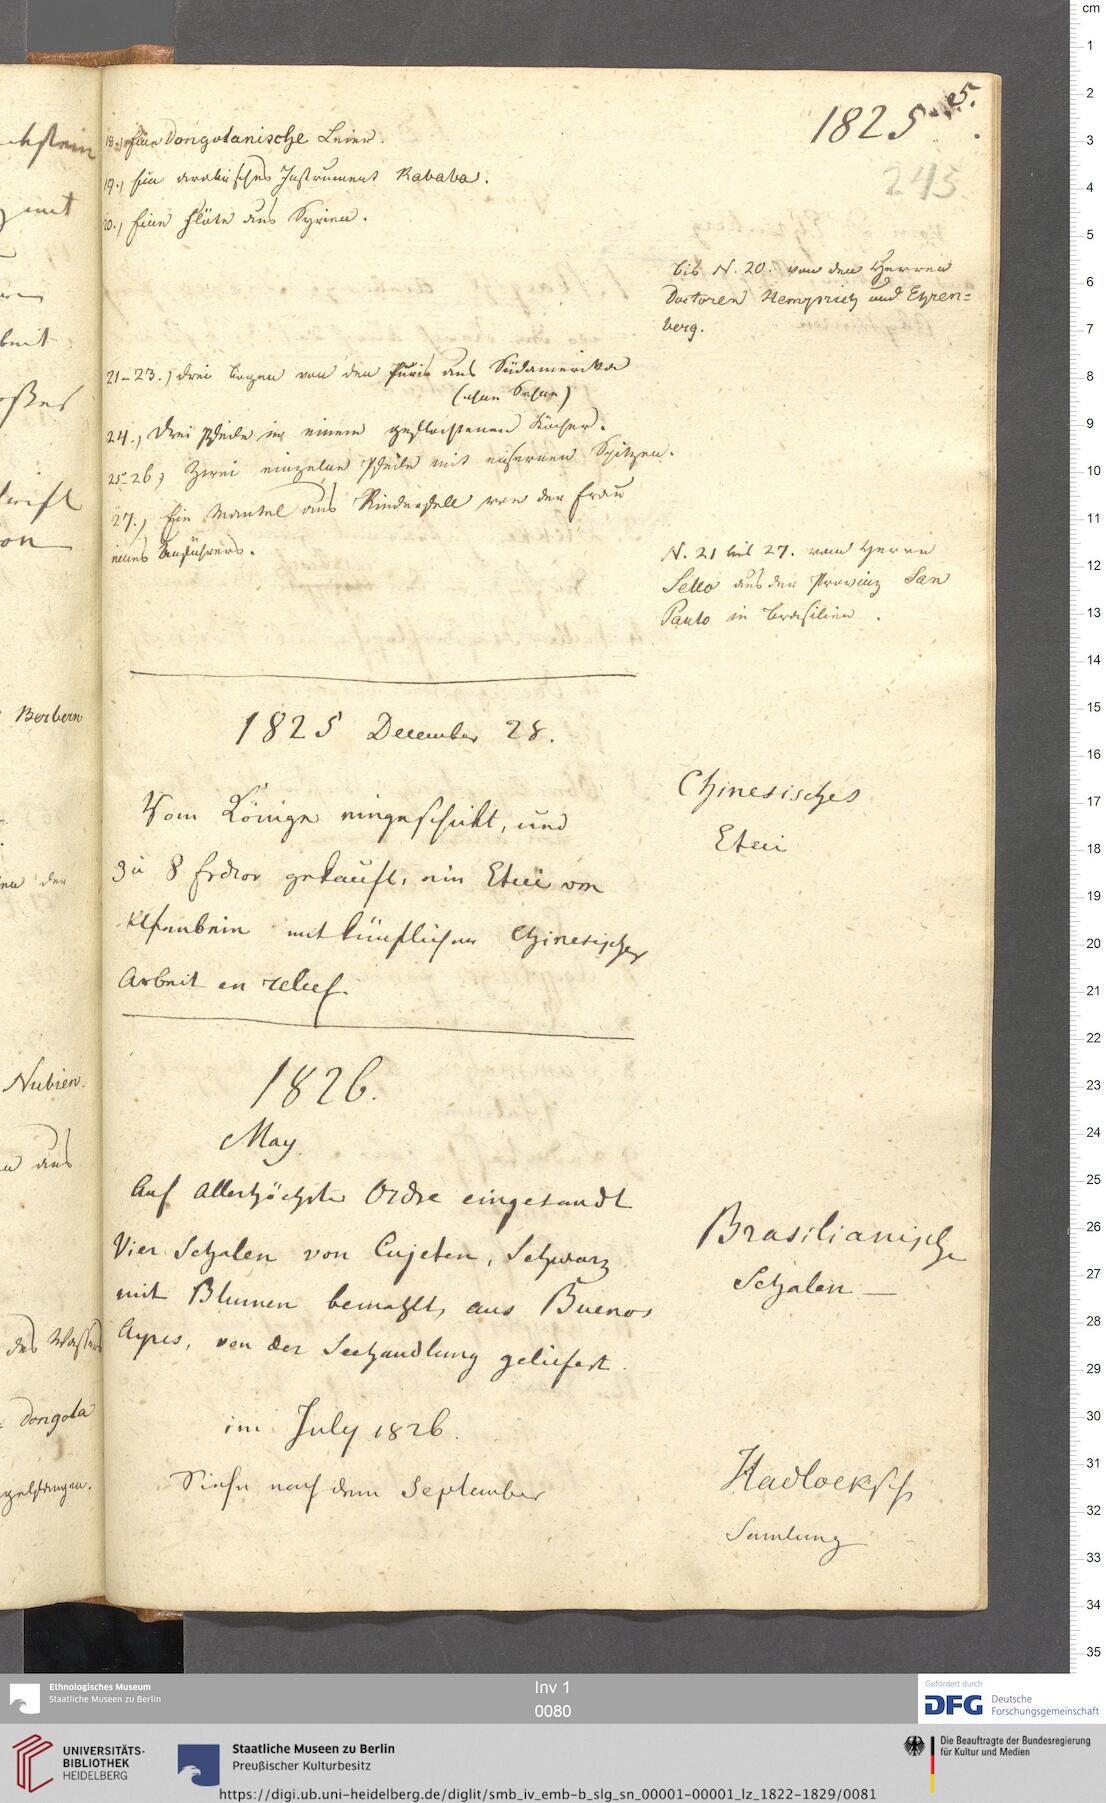 1825. 25.
245
18., Eine Dongolanische Leier.
19., Ein arabisches Instrument Rababa.
20., Eine Flöte aus Syrien.
bis N. 20. von den Herren
Doctoren Hemprich und Ehren=
berg.
21–23., drei Bogen von den Puris aus Südamerika
(ohne Sehne)
24., Drei Pfeile in einem geflochtenen Köcher.
25–26, Zwei einzelne Pfeile mit eisernen Spitzen.
27., Ein Mantel aus Rindsfell von der Frau
eines Anführers.
N. 21 bis 27. vom Herrn
Sello aus der Provinz San
Paulo in Brasilien.
1825 December 28.
Vom Könige eingeschikt, und
zu 8 Frdror gekauft, ein Etui von
Elfenbein mit künstlicher Chinesischer
Arbeit en relief.
Chinesisches
Etui
1826.
May.
Auf Allerhöchste Ordre eingesandt
Vier Schalen von Cujeten, Schwarz
mit Blumen bemahlt, aus Buenos
Ayres, von der Seehandlung geliefert.
Brasilianische
Schalen —
im July 1826.
Siehe nach dem September
Hadlocksch
Samlung
Berbern
Nubien.
aus
des Wassers
Dongola
cm
1
2
3
4
5
6
7
8
9
10
11
12
13
14
15
16
17
18
19
20
21
22
23
24
25
26
27
28
29
30
31
32
33
34
35
Ethnologisches Museum
Staatliche Museen zu Berlin
Inv 1
0080
Gefördert durch
DFG Deutsche
Forschungsgemeinschaft
UNIVERSITÄTS-
BIBLIOTHEK
HEIDELBERG
Staatliche Museen zu Berlin
Preußischer Kulturbesitz
Die Beauftragte der Bundesregierung
für Kultur und Medien
https://digi.ub.uni-heidelberg.de/diglit/smb_iv_emb-b_slg_sn_00001-00001_lz_1822-1829/0081